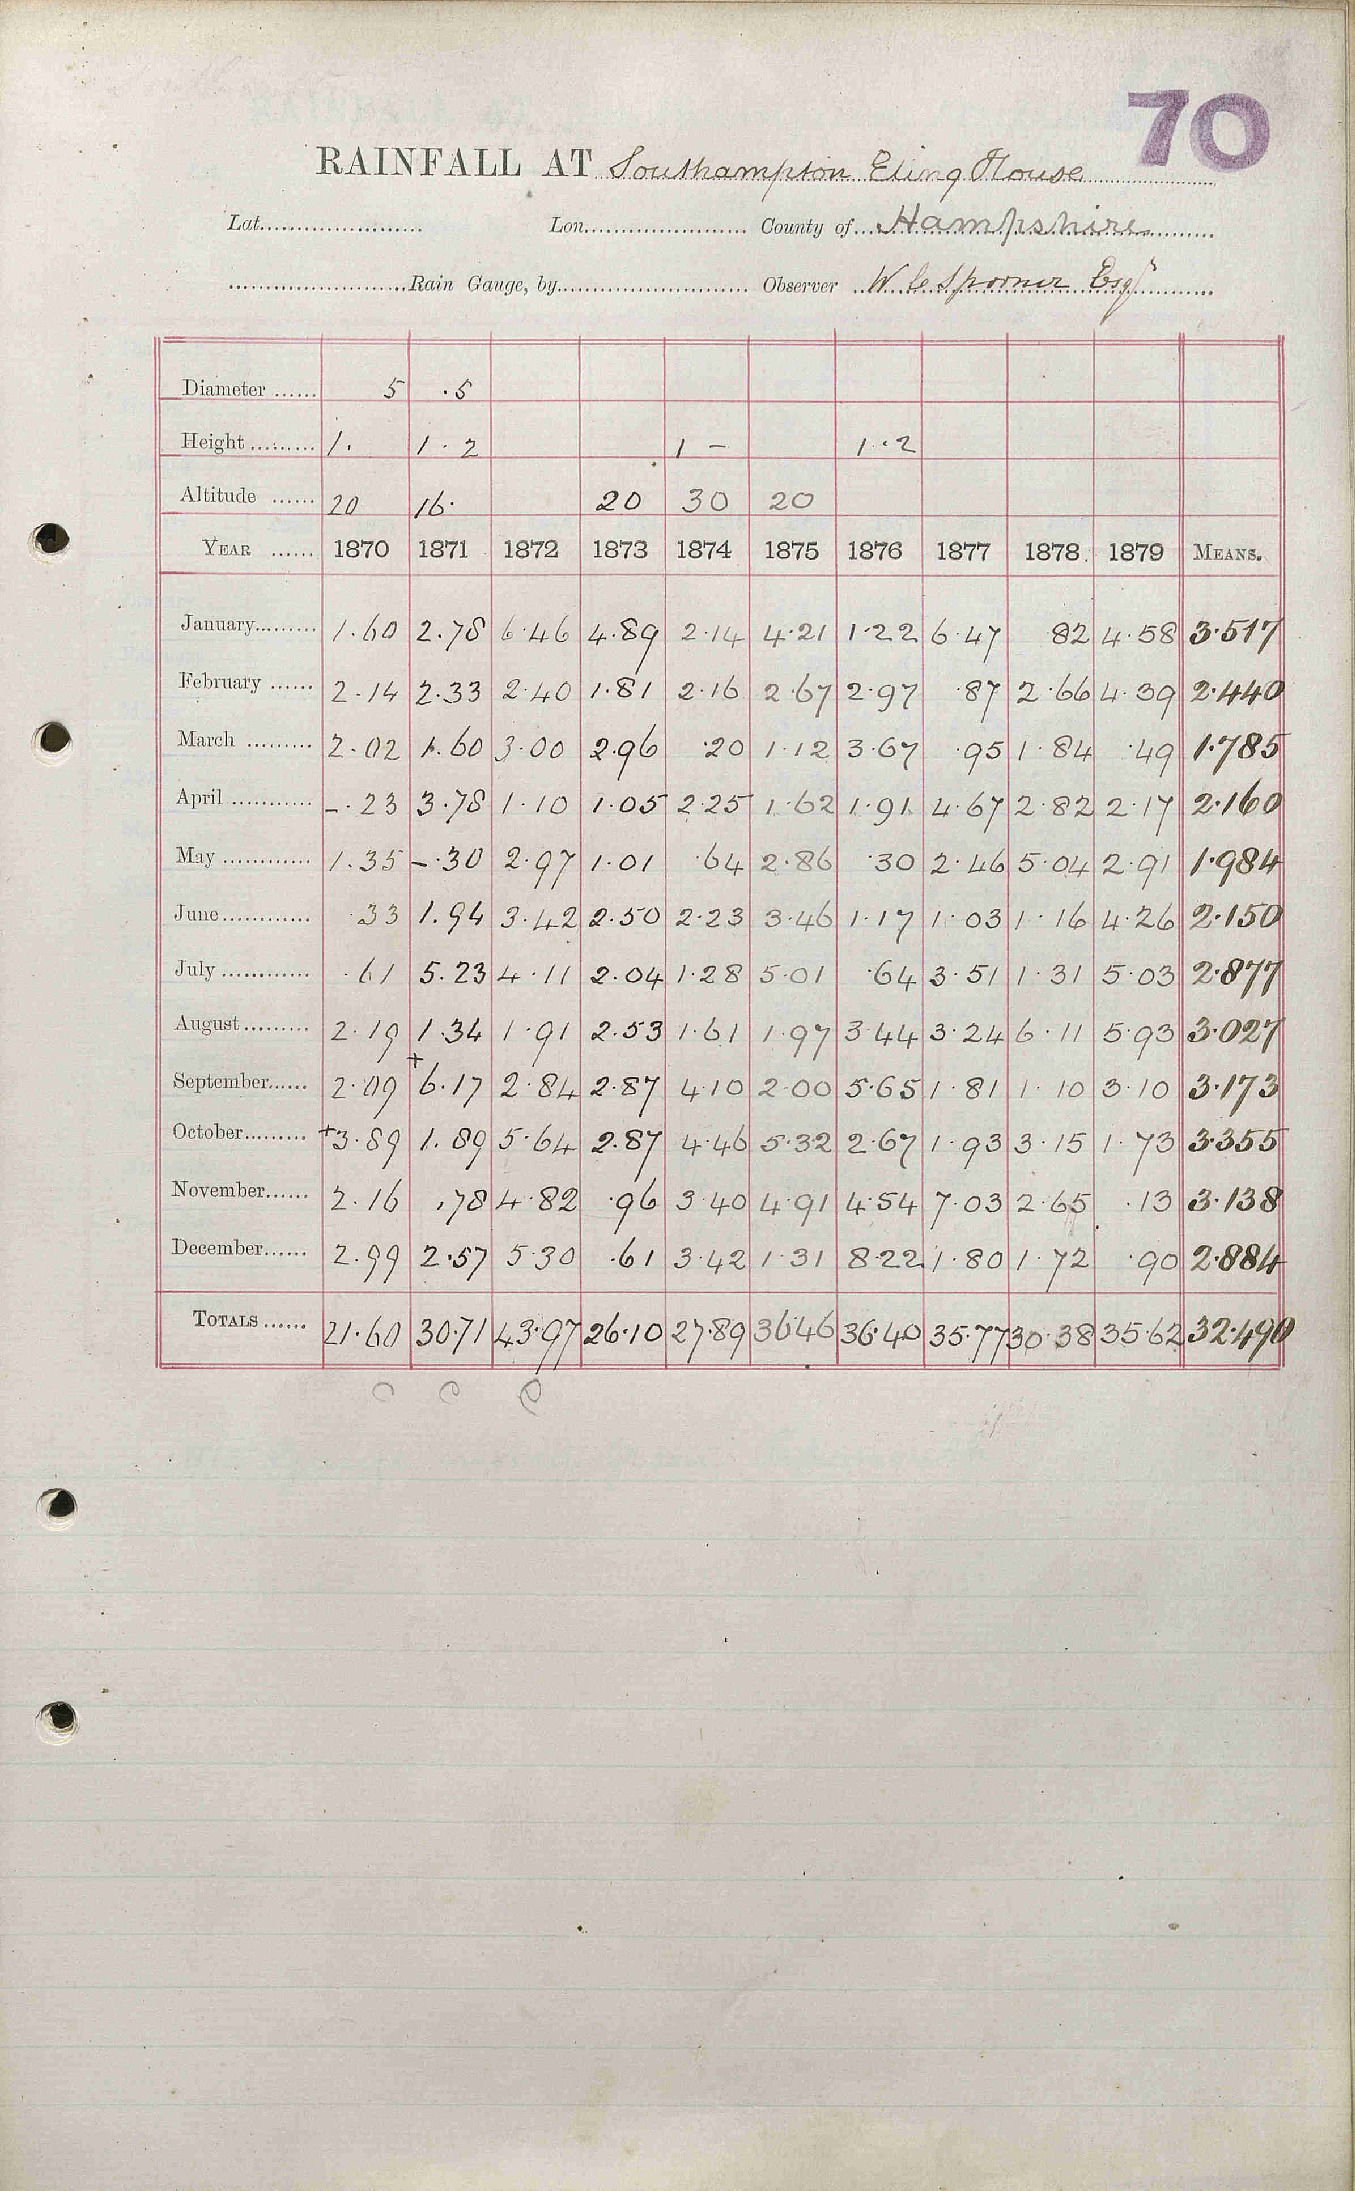 70
RAINFALL AT Southampton Eling House
Lat. Lon. County of Hampshire
Rain Gauge, by Observer W C Spooner Esqr
Diameter 5 .5
Height 1. 1.2 1 - 1.2
Altitude 20 16. 20 30 20
YEAR 1870 1871 1872 1873 1874 1875 1876 1877 1878 1879 MEANS.
January 1.60 2.78 6.46 4.89 2.14 4.21 1.22 6.47 82 4.58 3.517
February 2.14 2.33 2.40 1.81 2.16 2.67 2.97 .87 2.66 4.39 2.440
March 2.02 1.60 3.00 2.96 .20 1.12 3.67 .95 1.84 .49 1.785
April -.23 3.78 1.10 1.05 2.25 1.62 1.91 4.67 2.82 2.17 2.160
May 1.35 -.30 2.97 1.01 .64 2.86 .30 2.46 5.04 2.91 1.984
June .33 1.94 3.42 2.50 2.23 3.46 1.17 1.03 1.16 4.26 2.150
July .61 5.23 4.11 2.04 1.28 5.01 .64 3.51 1.31 5.03 2.877
August 2.19 1.34 1.91 2.53 1.61 1.97 3.44 3.24 6.11 5.93 3.027
September 2.09 +6.17 2.84 2.87 4.10 2.00 5.65 1.81 1.10 3.10 3.173
October +3.89 1.89 5.64 2.87 4.46 5.32 2.67 1.93 3.15 1.73 3.355
November 2.16 .78 4.82 .96 3.40 4.91 4.54 7.03 2.65 .13 3.138
December 2.99 2.57 5.30 .61 3.42 1.31 8.22 1.80 1.72 .90 2.884
TOTALS 21.60 30.71 43.97 26.10 27.89 36.46 36.40 35.77 30.38 35.62 32.490
C C C